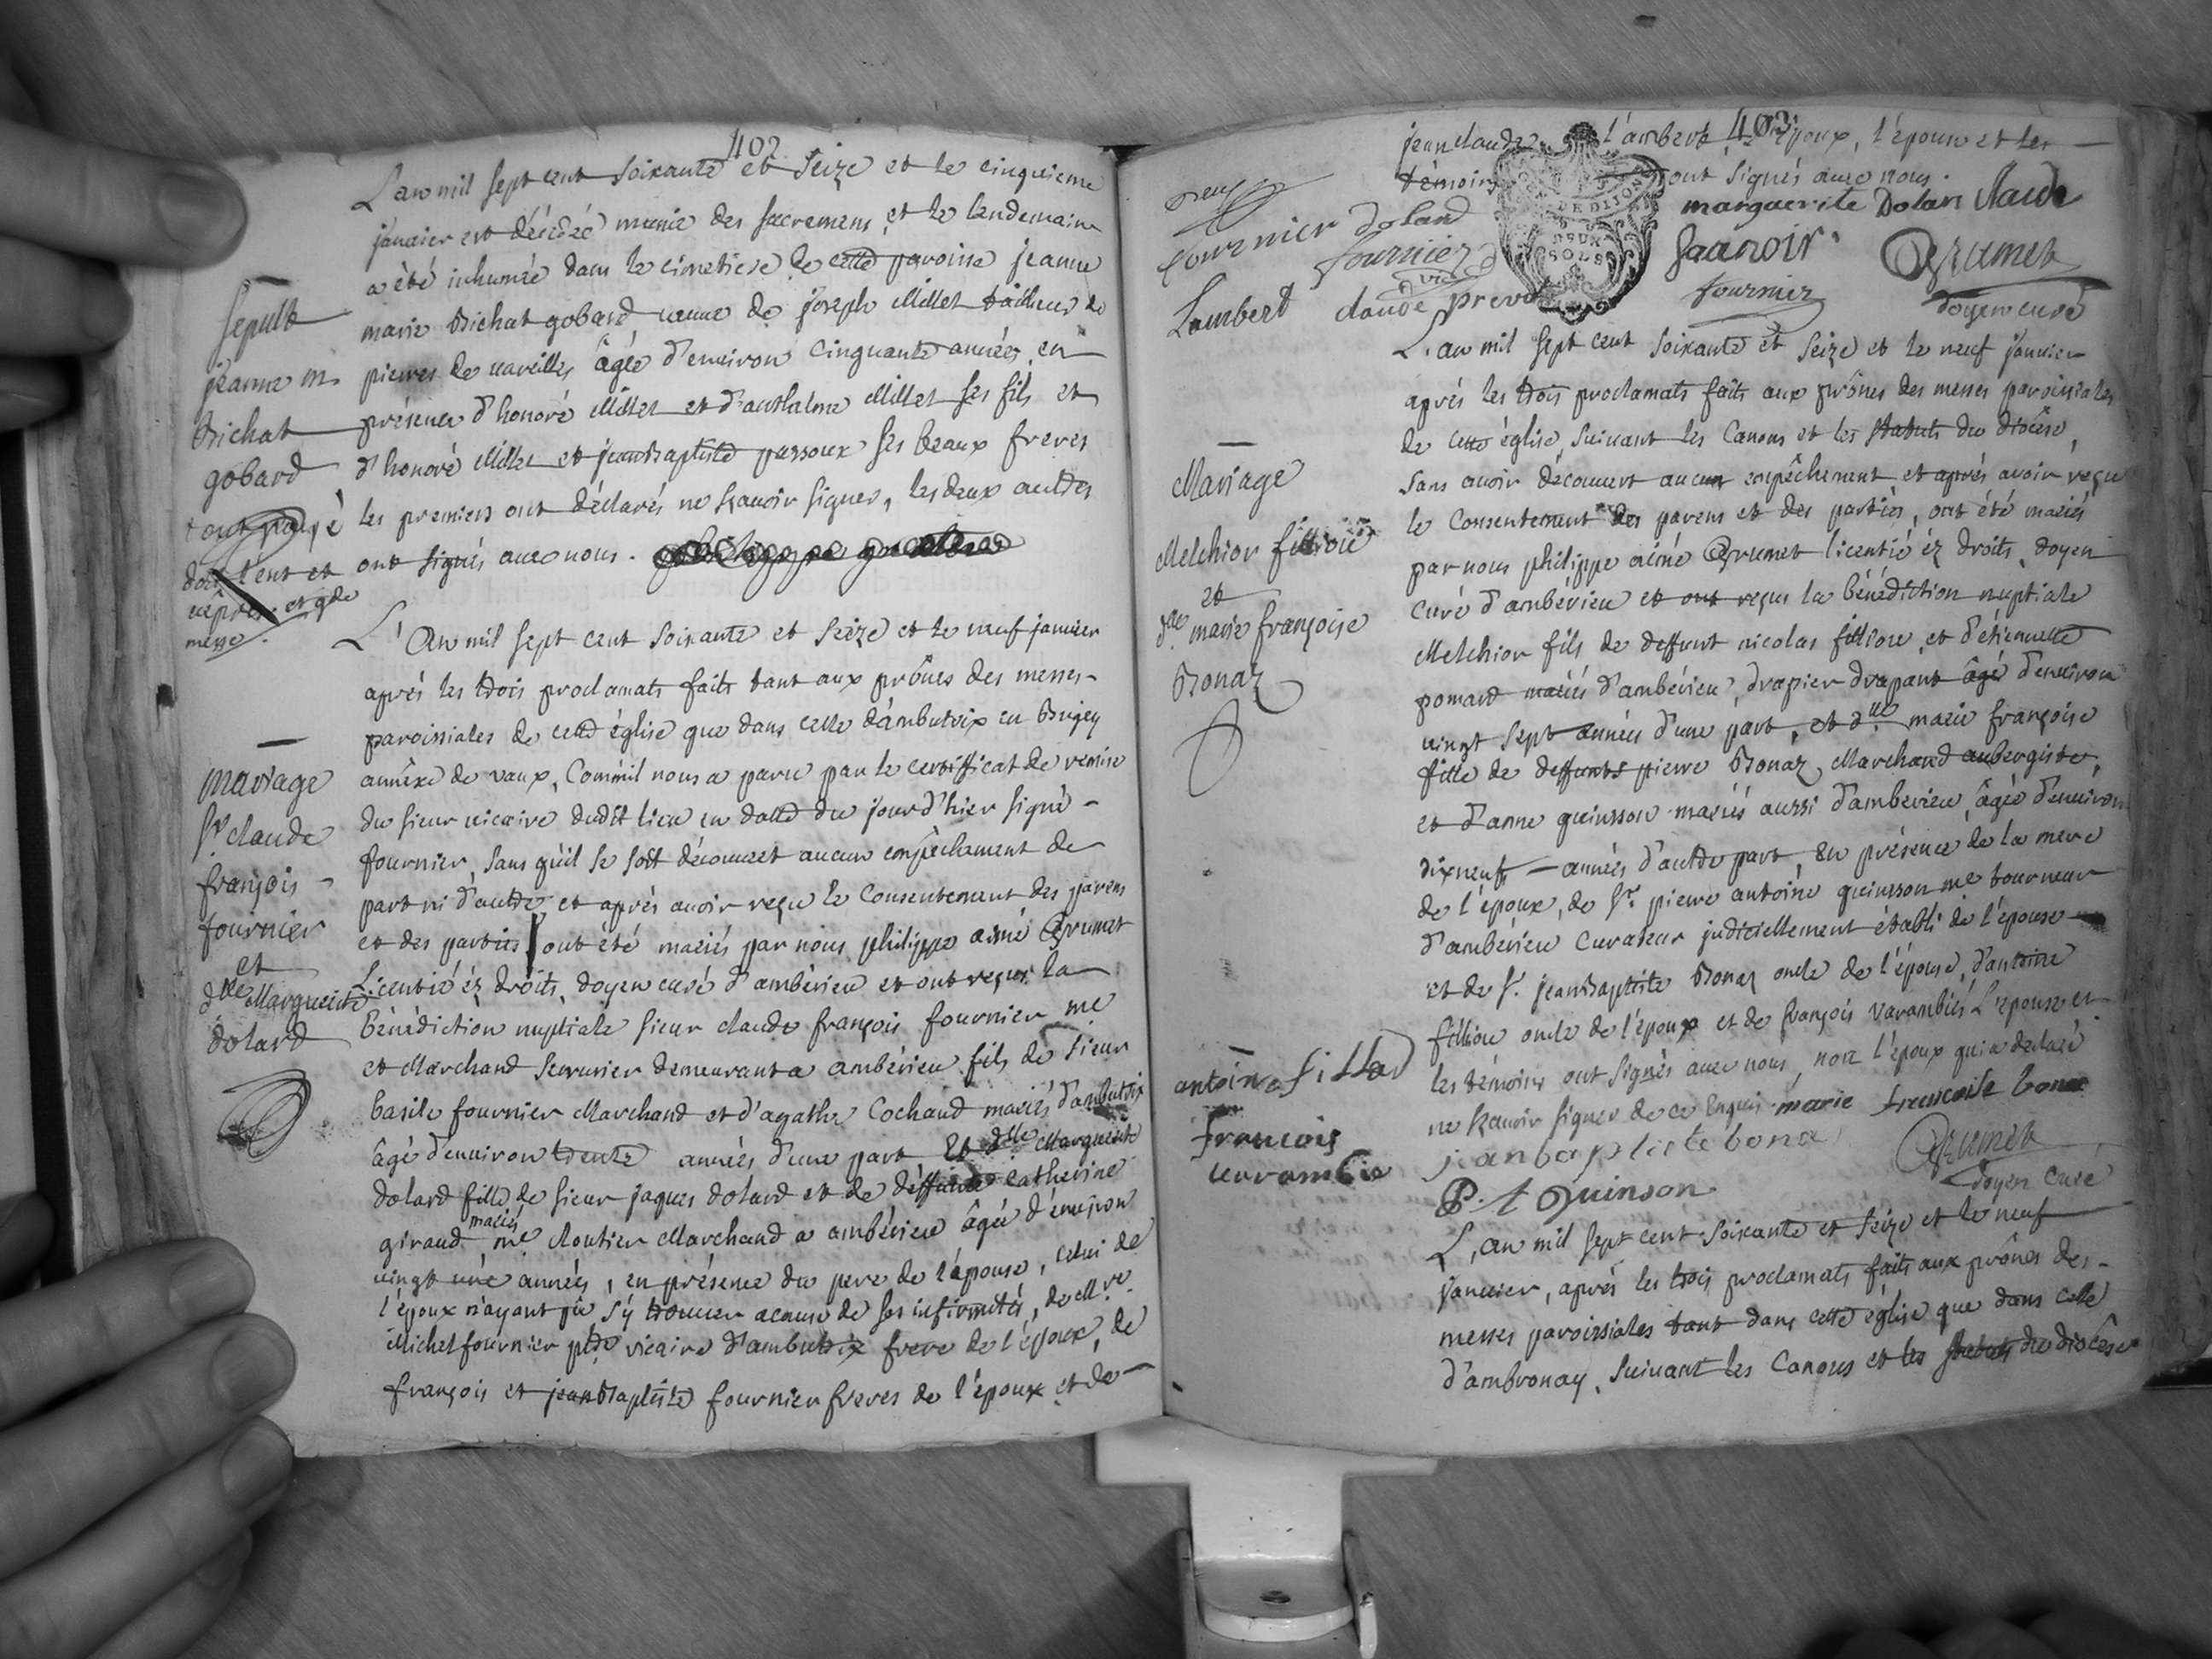 402
L'an mil sept cent soixante et seize et le cinquieme
janvier est décédée munie des sacremens, et le lendemain
a été inhumée dans le cimetiere de cette paroisse jeanne
marie Bichat gobard veuve de joseph Millet tailleur de
pierres de vareilles âgée d'environ cinquante années en
présence d'honoré Millet et d'anthalme Millet ses fils et
d'honoré Millet et jeanbaptiste passoux ses beaux freres
les premiers ont déclarés ne sçavoir signer, les deux autres
ont signés avec nous.
sepult
jeanne m.
Bichat
gobard
et gde
messe.
L'An mil sept cent soixante et seize et le neuf janvier
après les trois proclamats faits tant aux prônes des messes
paroissiales de cette église que dans celle d'ambutrix en Bugey
annéxe de vaux, comm'il nous a paru par le certifficat de remise
du sieur vicaire dudit lieu en datte du jour d'hier signé
fournier, sans qu'il se soit découvert aucun empêchement de
part ni d'autre, et après avoir reçu le consentement des parens
et des parties ont été mariés par nous philippe aimé Grumet
Licentié éz droits, doyen curé d'ambérieu et ont reçus la
bénédiction nuptiale sieur claude françois fournier me
et Marchand serrurier demeurant a ambérieu fils de sieur
basile fournier Marchand et d'agathe Cochaud mariés d'ambutrix
âgé d'environ trente années d'une part Et dlle Marguerite
dolard fille de sieur jaques dolard et de deffunte catherine
giraud mariés, me cloutier Marchand a ambérieu âgée d'environ
vingt une années, en présence du pere de l'épouse, celui de
l'époux n'ayant pû s'y trouver acause de ses infirmités, de Mre.
Michel fournier ptre vicaire d'ambutrix frere de l'époux, de
françois et jeanbaptiste fournier freres de l'époux et de
mariage
sr claude
françois
fournier
et
dlle Marguerite
dolard
403
jean claude Lambert. L'époux, l'épouse et les
témoins ont signés avec nous.
marguerite Dolar Claude
fournier dolard
fournier
vic
Grumet
Lambert claude prevot
fournier
doyen curé
L'an mil sept cent soixante et seize et le neuf janvier
après les trois proclamats faits aux prônes des messes paroissiales
de cette église, suivant les Canons et les statuts du diocèse,
sans avoir découvert aucun empêchement et après avoir reçu
le consentement des parens et des parties, ont été mariés
par nous philippe aimé Grumet licentié éz droits, doyen
curé d'ambérieu et ont reçus la bénédiction nuptiale
Melchior fils de deffunt nicolas filliou, et d'étiennette
pomard mariés d'ambérieu, drapier drapant âgé d'environ
vingt sept années d'une part, et dlle marie françoise
fille de deffunts pierre Bonaz Marchand aubergiste,
et d'anne guinsson mariés aussi d'ambérieu, âgée d'environ
dixneuf années d'autre part, En présence de la mere
de l'époux, de sr. pierre antoine quinsson me tourneur
d'ambérieu curateur judiciellement établi de l'épouse
et de sr. jeanbaptiste Bonaz oncle de l'épouse, d'antoine
filliou oncle de l'époux et de françois varambier L'epouse et
les témoins ont signés avec nous, non l'époux qui a declaré
ne sçavoir signer de ce Enquis marie francoise bona
Mariage
Melchior filliou
et
dlle marie françoise
Bonaz
antoine
francois
jean baptiste bona
Grumet
P. A Quinson
doyen curé
L'an mil sept cent soixante et seize et le neuf
janvier, après les trois proclamats faits aux prônes des
messes paroissiales tant dans cette église que dans celle
d'ambronay, suivant les Canons et les statuts du diocèse